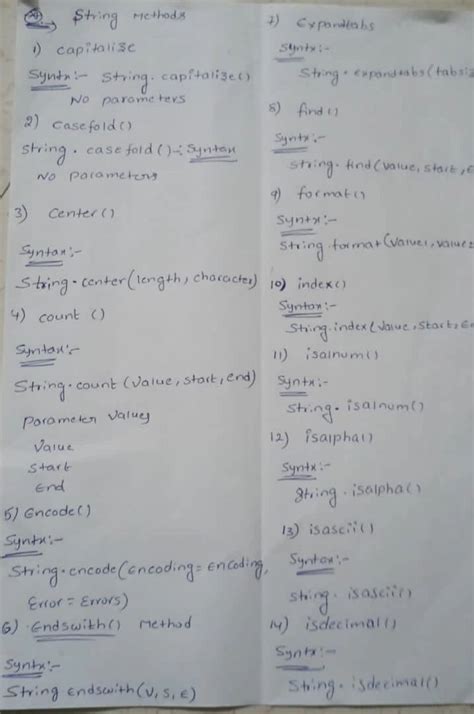 String Methods
1) capitalize
Syntx:- String.capitalize()
No parameters
2) Casefold()
String.casefold() :- Syntax
No Parameters
3) Center()
Syntax:-
String.center(length, character)
4) count ()
Syntax:-
String.count (Value, start, end)
Parameter Values
Value
Start
End
5) Encode()
Syntx:-
String.encode(Encoding = Encoding,
Error = Errors)
6) Endswith() Method
Syntx:-
String endswith(V, S, E)
7) Expandtabs
Syntx:-
String.expandtabs(tabsiz
8) find()
Syntx:-
String.find(Value, Start, E
9) format()
Syntx:-
String.format(Value1, value2
10) index()
Syntax:-
String.index(Value, Start, En
11) isalnum()
Syntx:-
String.isalnum()
12) isalpha()
Syntx:-
String.isalpha()
13) isascii()
Syntax:-
String.isascii()
14) isdecimal()
Syntx:-
String.isdecimal()